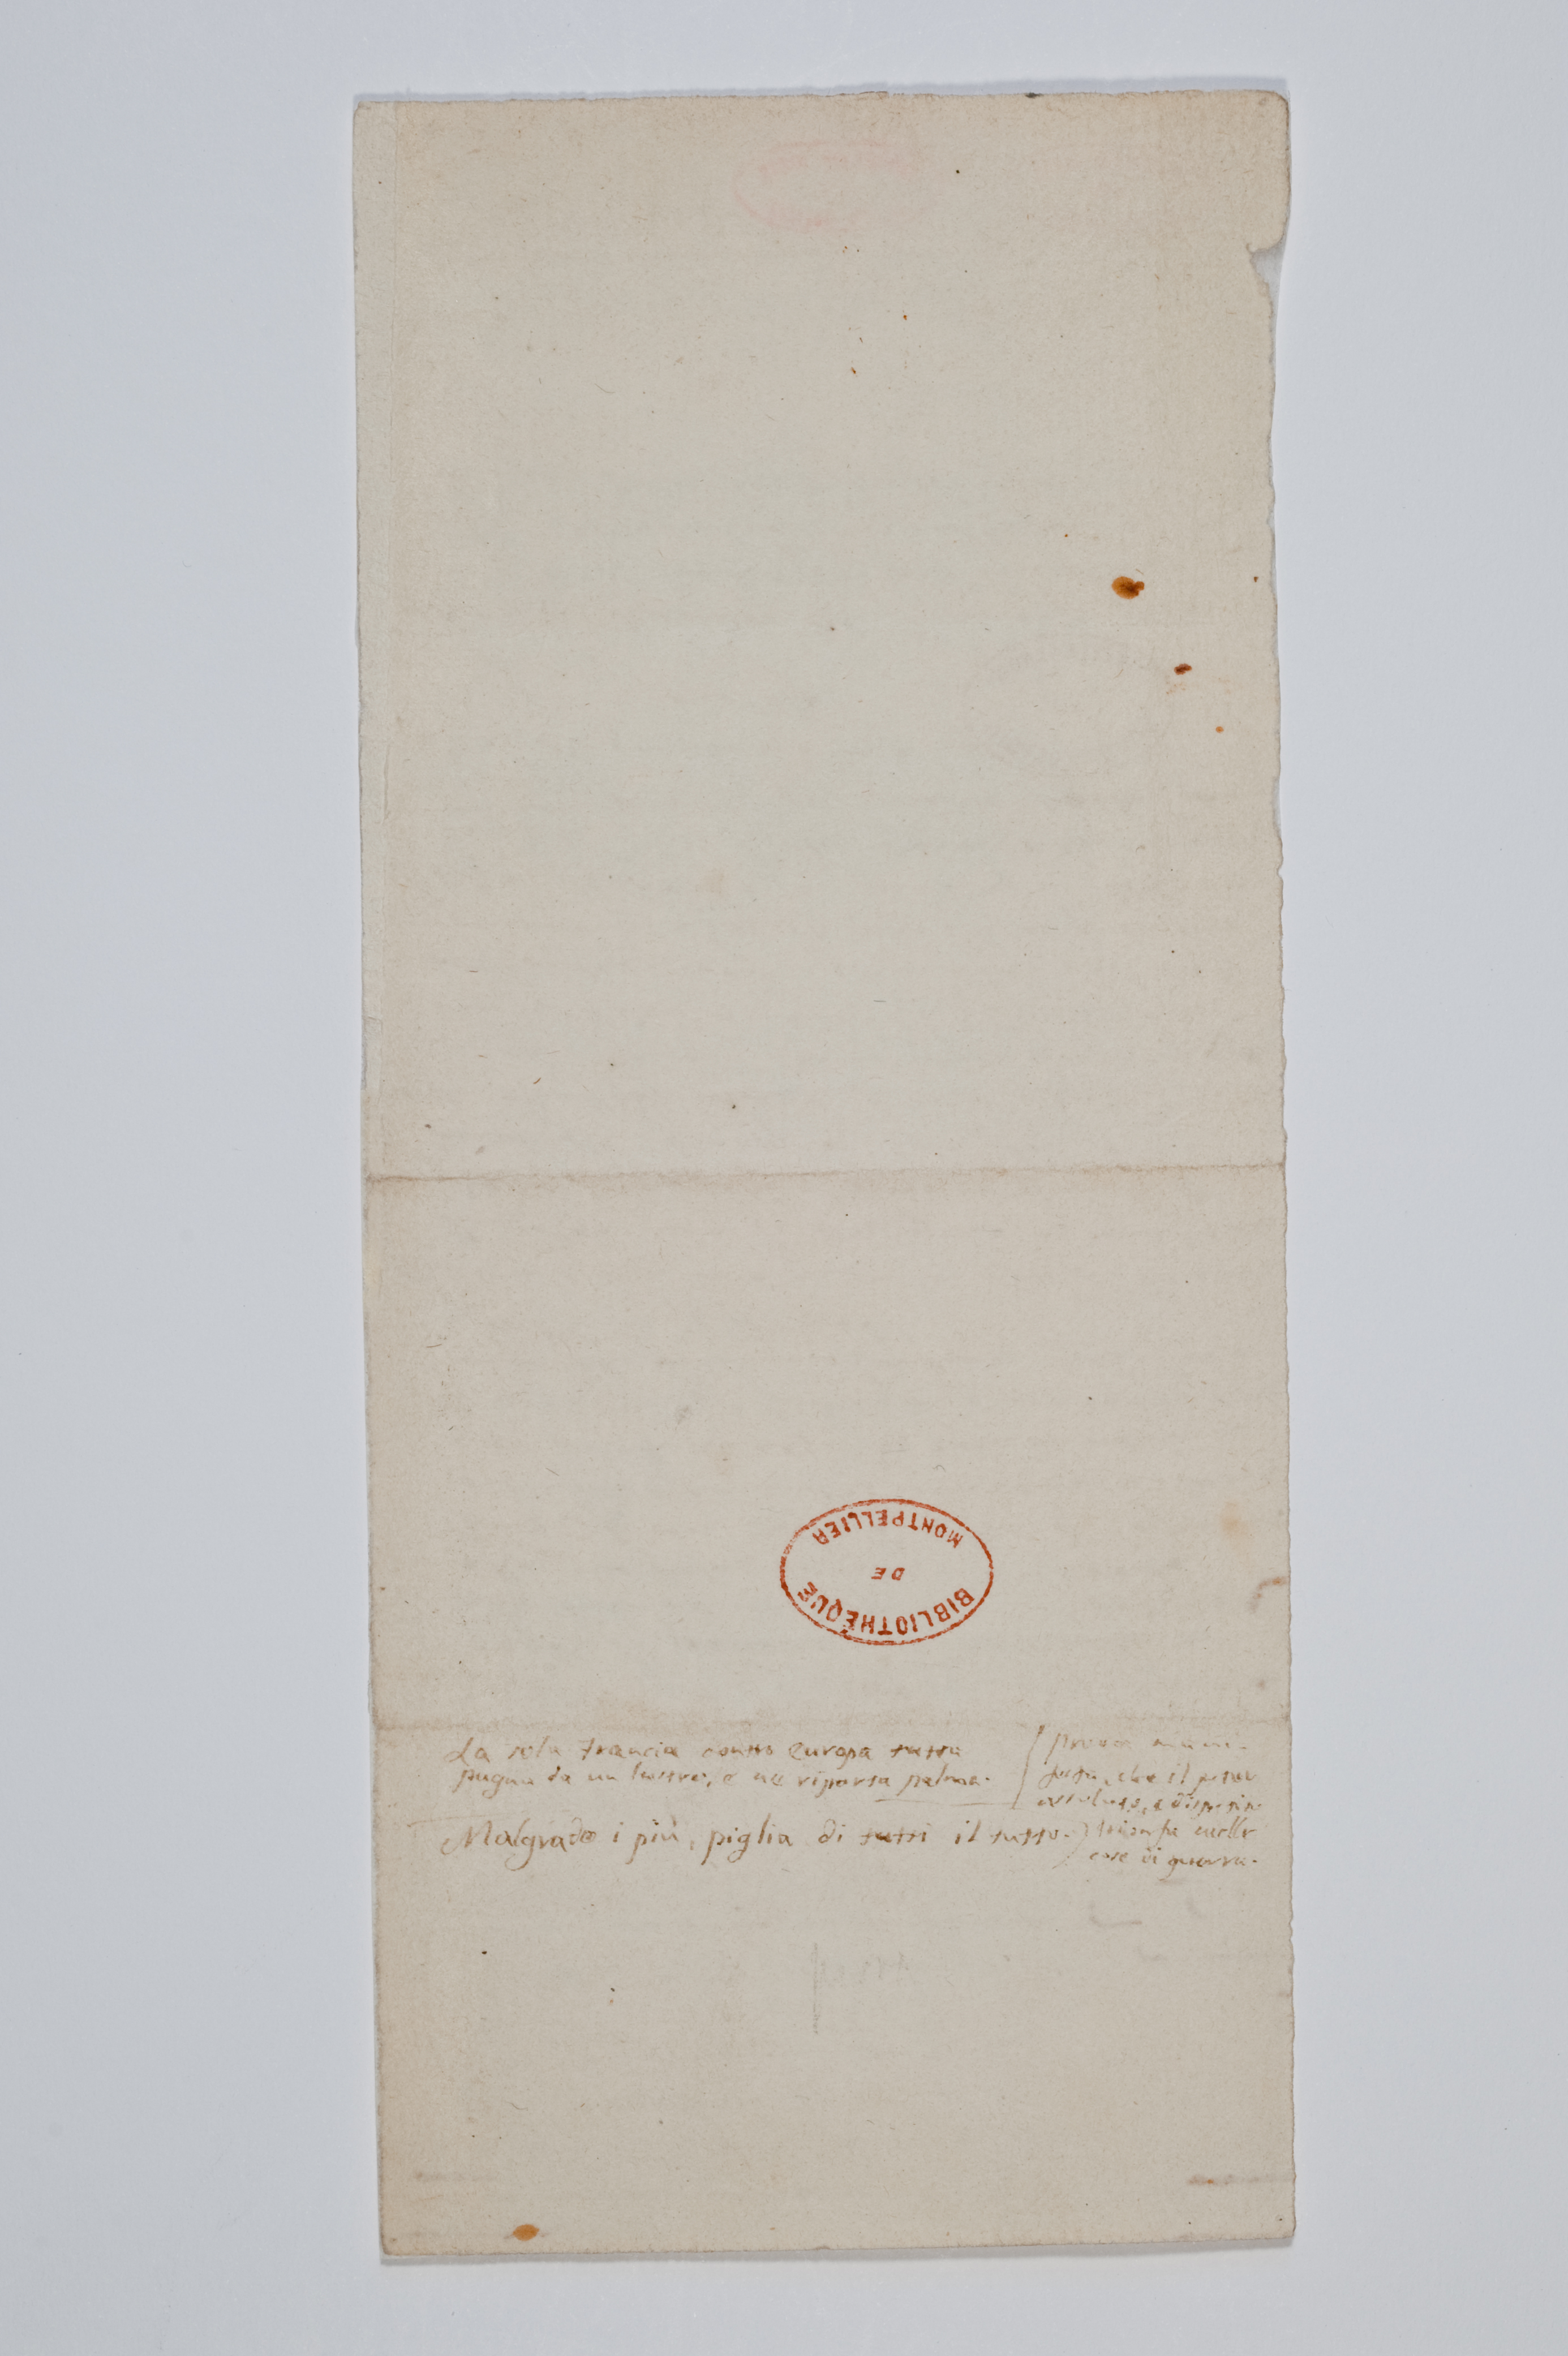 BIBLIOTHÈQUE
DE
MONTPELLIER
La sola Francia contro Europa tutta
pugna da un lustro, e ne riporta palma.
Malgrado i più, piglia di tutti il tutto.
prova mani-
festa, che il poter
assoluto, e
trionfa nelle
cose di guerra.